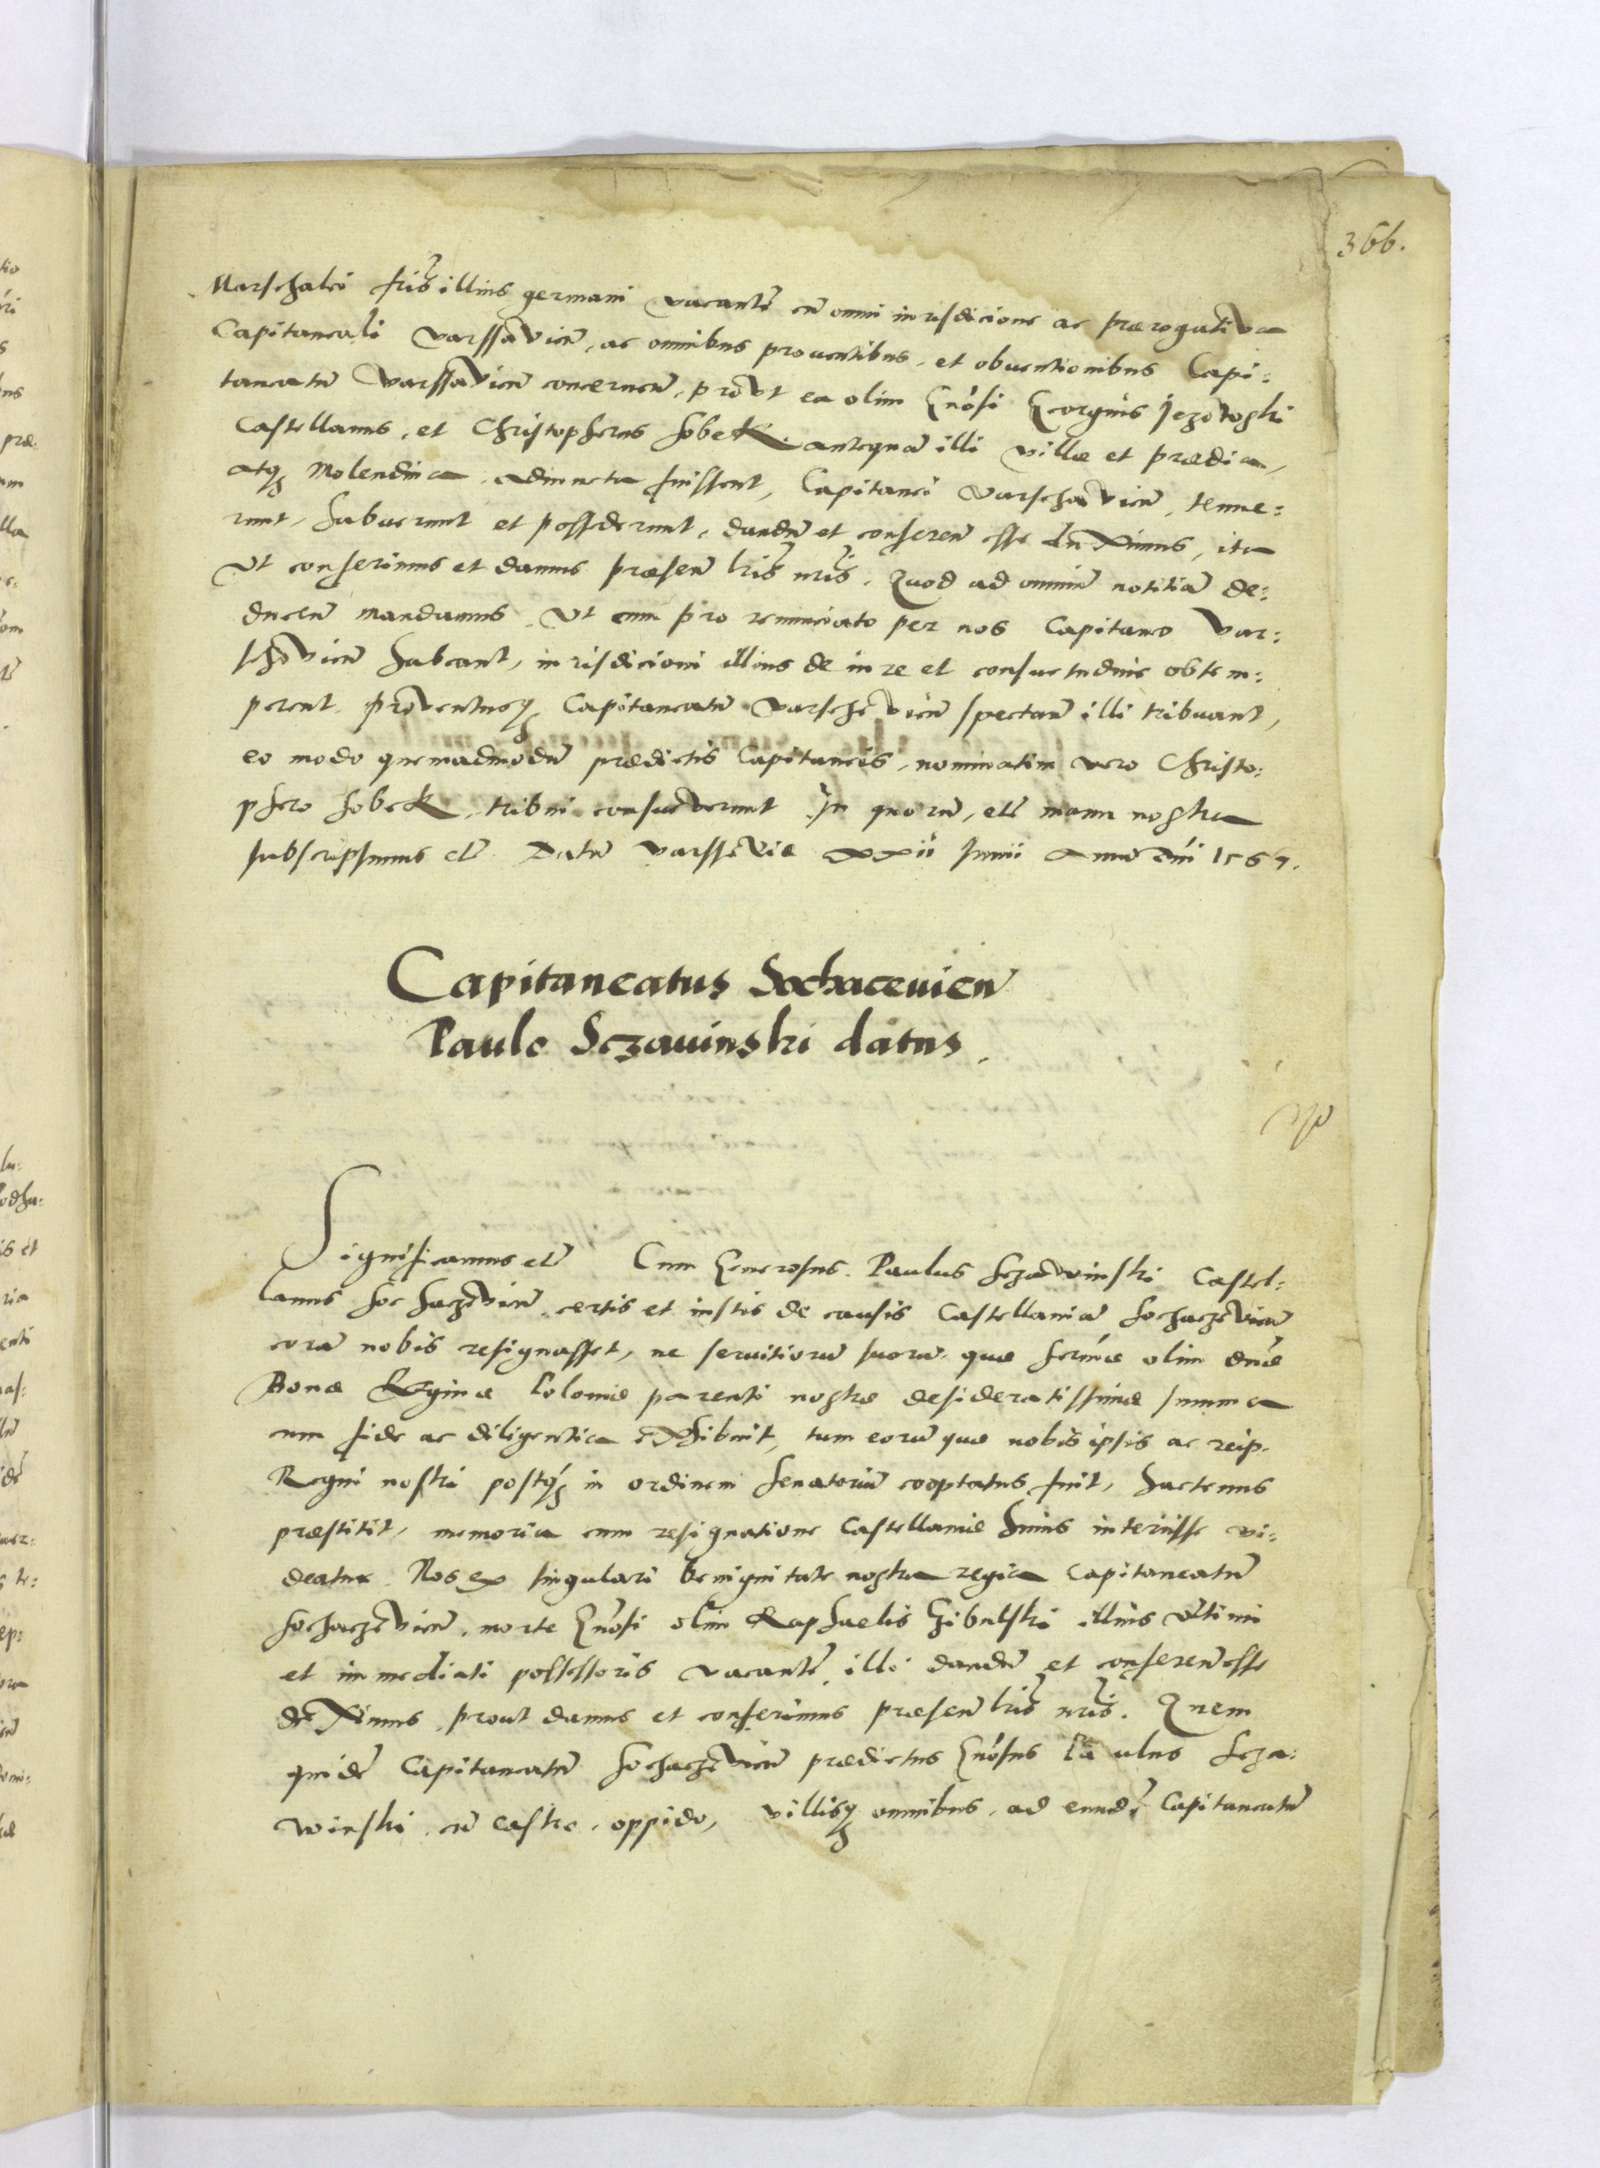 366.
Marschalci fris illius germani vacantẽ cũ omni iurisdicione ac prærogativa
Capitaneali Varssavieñ, ac omnibus proventibus, et obventionibus Capi:
taneatũ Varssavieñ concerneñ, provt ea olim Gnosi Georgius Jezowski
Castellanus, et Christopherus Sobek antequã illi villæ et prædia,
atq3 Molendina adiuncta fuissent, Capitanei Varschavieñ, tenue:
runt, habuerunt et possederunt, dandũ et conferenđ esse duximus, ita
Vt conferimus et damus præseñ lris nris. Quod ad omniũ notitiã de:
ducenđ mandamus. Vt eum pro renunciato per nos Capitaneo Var:
schovieñ habeant, iurisdicioni illius de iure et consuetudine obtem:
perent, proventusq3 Capitaneatũ Varschevieñ spectañ illi tribuant,
eo modo quemadmodũ prædictis Capitaneis, nominatim vero Christo:
phero Sobek, tribui consueverunt. In quorũ, etc̃ manu nostra
subscripsimus etc̃ Datũ Varssaviæ xxii Junii Anno dni 1567.
Capitaneatus Sochaceuieñ
Paulo Sczawinski datus.
Significamus etc̃ Cum Generosus Paulus Sczawinski Castel:
lanus Sochaczevieñ certis et iustis de causis Castellaniã Sochaczevieñ
corã nobis resignasset, ne servitiorũ suorũ, quæ sermæ olim dnæ
Bonæ Reginæ Poloniæ parenti nostræ desideratissimæ summa
cum fide ac diligentia exhibuit, tum eorũ quæ nobis ipsis ac reip.
Regni nostri postq3 in ordinem Senatoriũ cooptatus fuit, hactenus
præstitit, memoria cum resignatione Castellaniæ huius interiisse vi:
deatur. Nos ex singulari benignitate nostra regia Capitaneatũ
Sochaczevieñ, morte Gnosi olim Raphaelis Gibulski illius ultimi
et immediati possessoris vacantẽ, illi dandũ et conferenđ esse
duximus, prout damus et conferimus præseñ lris nris. Quem
quidẽ Capitaneatũ Sochaczevieñ prædictus Gnosus Paulus Scza:
winski, cũ castro, oppido, villisq3 omnibus, ad eundẽ Capitaneatũ